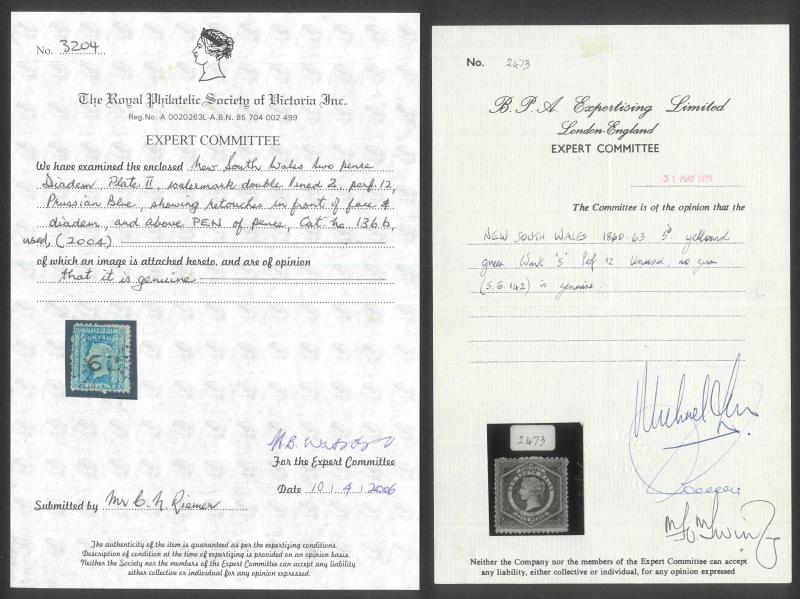 No. 3204
The Royal Philatelic Society of Victoria Inc.
Reg.No. A 0020263L-A.B.N. 85 704 002 499
EXPERT COMMITTEE
We have examined the enclosed New South Wales two pence
Diadem Plate II, watermark double lined 2, perf. 12,
Prussian Blue, showing retouches in front of face &
diadem, and above PEN of pence, Cat. No. 136b,
used, (2004)
of which an image is attached hereto, and are of opinion
that it is genuine
POSTAGE
TWO PENCE
M.B. Watson
For the Expert Committee
Date 10/4/2006
Submitted by Mr C. N. Riemer
The authenticity of the item is guaranteed as per the expertizing conditions.
Description of condition at the time of expertizing is provided on an opinion basis.
Neither the Society nor the members of the Expert Committee can accept any liability
either collective or individual for any opinion expressed.
No. 2473
B.P.A. Expertising Limited
London-England
EXPERT COMMITTEE
31 MAY 1979
The Committee is of the opinion that the
NEW SOUTH WALES 1860-63 5d yellowish
green Wmk '5' Perf 12 Unused no gum
(S.G. 142) is genuine.
2473
Neither the Company nor the members of the Expert Committee can accept
any liability, either collective or individual, for any opinion expressed